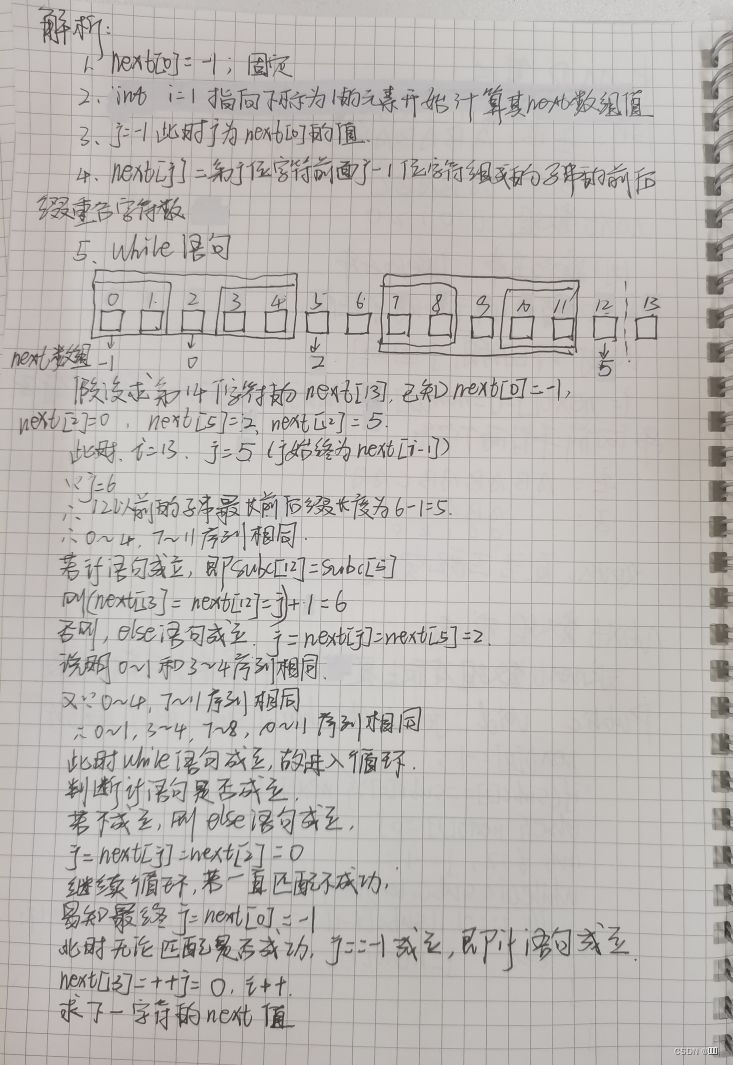 解析:
1. next[0]=-1; 固定
2. int i=1 指向下标为1的元素开始计算其next数组值
3. j=-1 此时j为next[0]的值.
4. next[j]=第j位字符前面j-1位字符组成的子串的前后
缀重合字符数
5. while语句
0 1 2 3 4 5 6 7 8 9 10 11 12 13
next数组 -1 0 2 5
假设求第14个字符的next[13], 已知next[0]=-1,
next[2]=0, next[5]=2, next[12]=5.
此时. i=13. j=5 (j始终为next[i-1])
∵j=6
∴12以前的子串最长前后缀长度为6-1=5.
∴0~4, 7~11序列相同.
若if语句成立, 即subc[12]=subc[5]
则(next[13]=next[12]=j)+1=6
否则, else语句成立. j=next[j]=next[5]=2.
说明0~1和3~4序列相同.
又∵0~4, 7~11序列相同
∴0~1, 3~4, 7~8, 10~11序列相同
此时while语句成立, 故进入循环.
判断if语句是否成立.
若不成立, 则else语句成立.
j=next[j]=next[2]=0
继续循环, 若一直匹配不成功,
易知最终j=next[0]=-1
此时无论匹配是否成功, j==-1成立, 即if语句成立.
next[13]=++j=0. i++.
求下一字符的next值